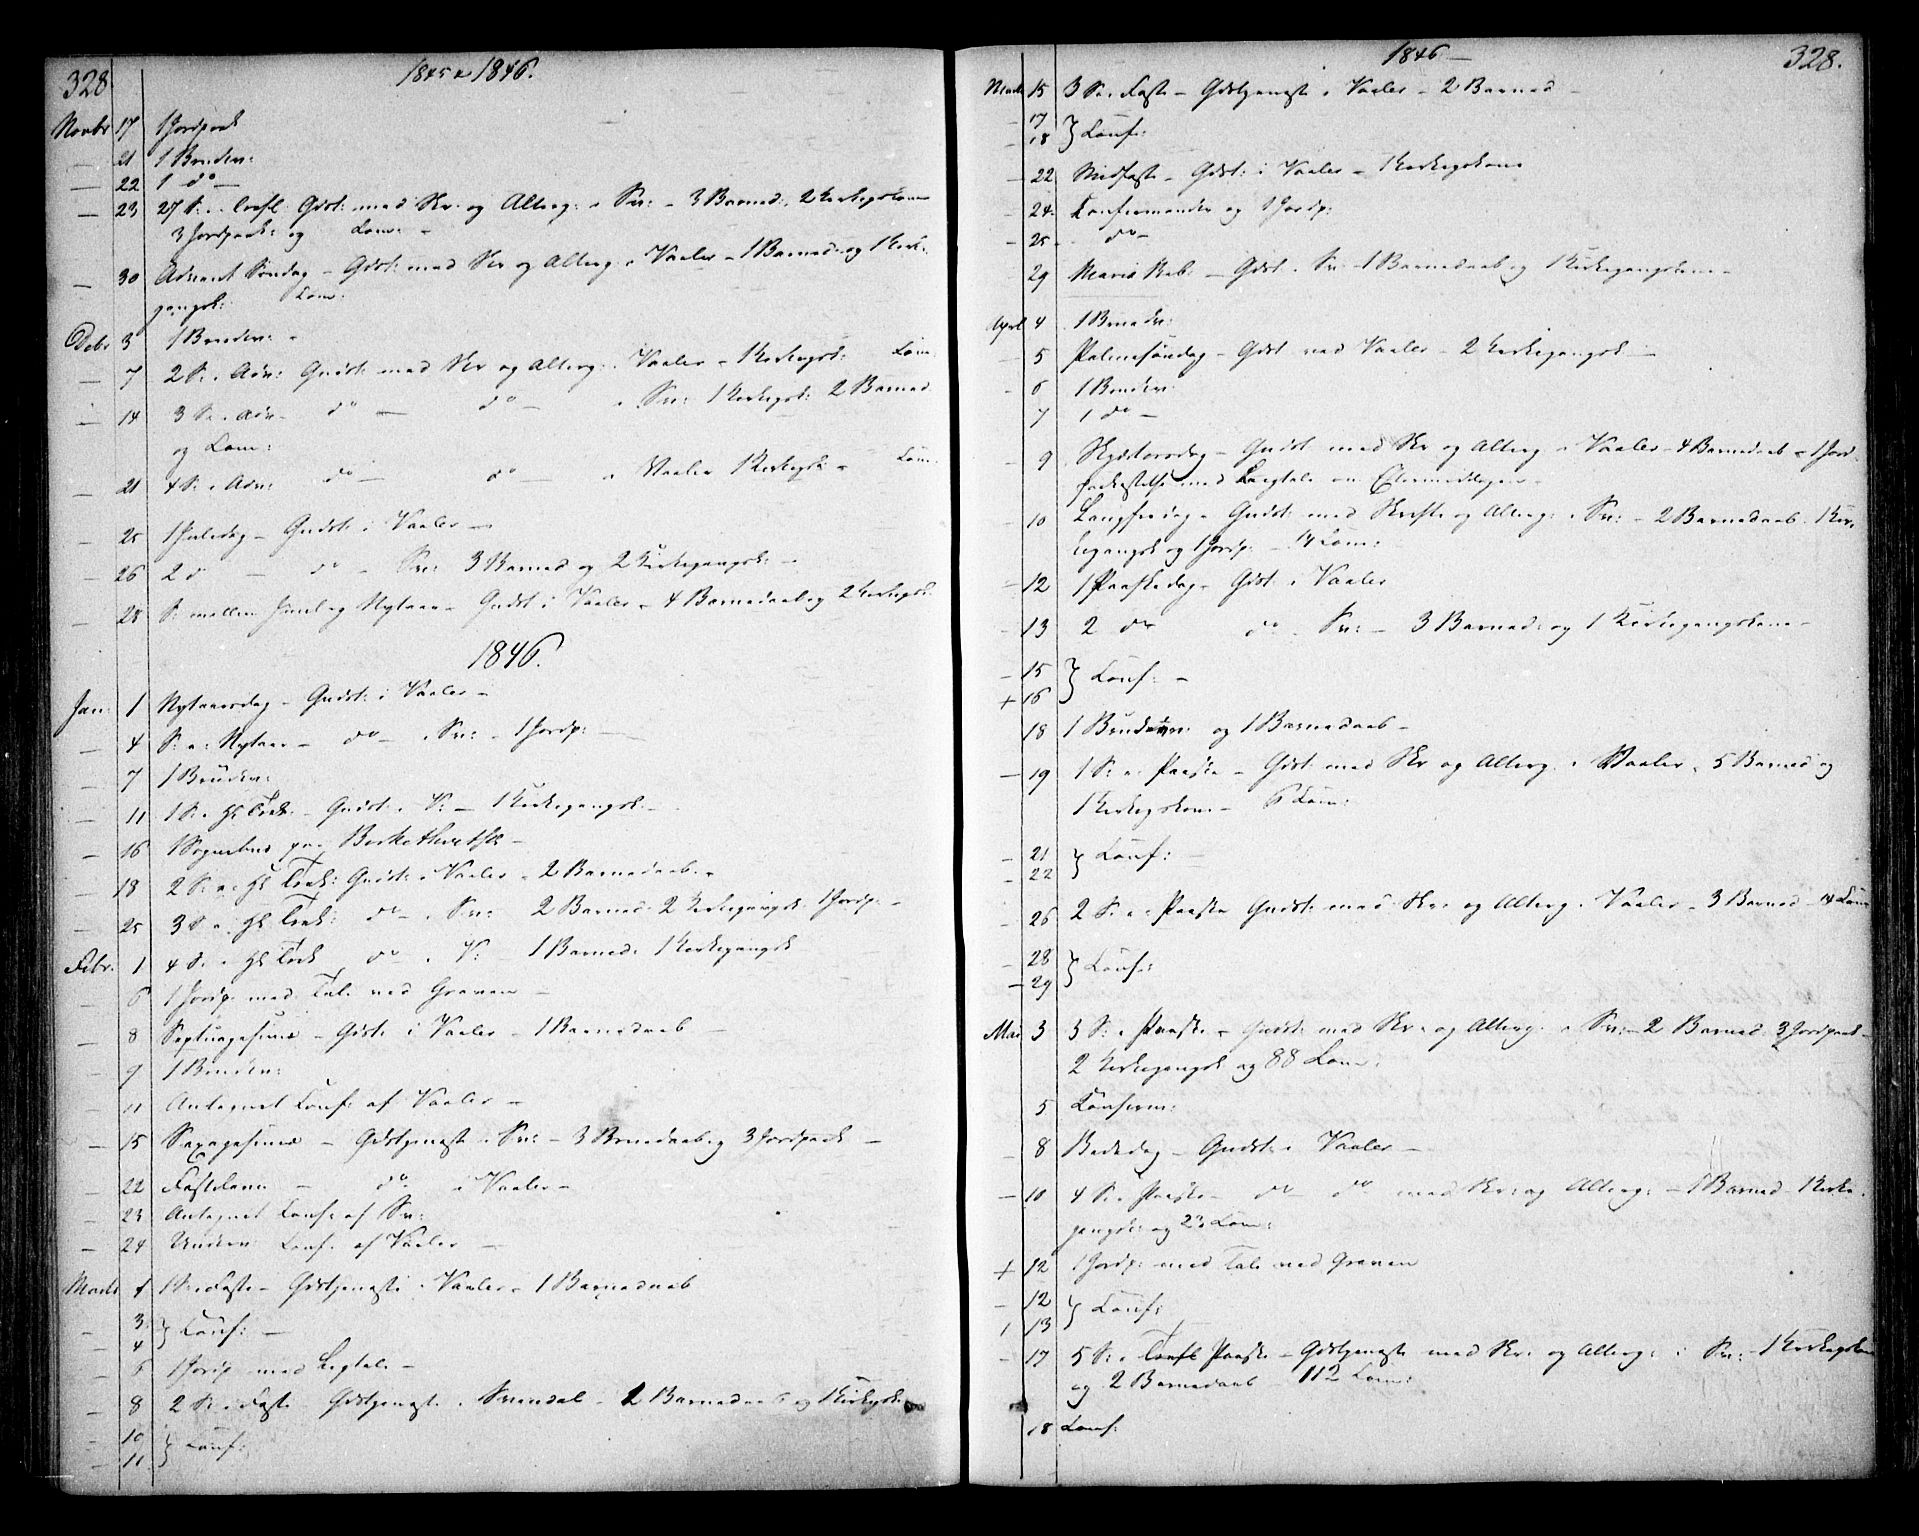 328
1845 & 1846.
Novbr 17 1 Jordpaak
— 21 1 Brudev:
— 22 1 do —
— 23 27 S: Gdst: med Skr: og Alterg: i Sv: – 3 Barned: 2 Kirkegskone
3 Jordpaak: og Com: –
— 30 Advent Søndag – Gdst: med Skr og Alterg. i Vaaler – 1 Barned: og 1 Kirke-
gangsk: Com:
Debr 3 1 Brudev: –
— 7 2 S. i Adv: Gudst: med Skr og Alterg: i Vaaler – 1 Kirkegsk: Com:
— 14 3 S. i Adv – do — do — i Sv: 1 Kirkegsk: 2 Barned
og Com:
— 21 4 S. i Adv: do — do — i Vaaler 1 Kirkegsk – Com:
— 25 1 Juledag – Gudst: i Vaaler –
— 26 2 d — do – Sv: 3 Barned og 2 Kirkegangsk: –
— 28 S: mellem Juul og Nytaar – Gudst i Vaaler – 4 Barnedaab og 2 Kirkegsk:
1846.
Jan: 1 Nytaarsdag – Gudst: i Vaaler –
— 4 S: e: Nytaar – do — i Sv: – 1 Jordp: —
— 7 1 Brudev:
— 11 1 S. e Hl Trek: – Gudst: i V: – 1 Kirkegangsk –
— 16 1 Sognebud paa
— 18 2 S. e: Hl Trek: Gudst: i Vaaler – 2 Barnedaab. –
— 25 3 S e: Hl Trek: do — i Sv: 2 Barned: 2 Kirkegangsk: 1 Jordp: –
Febr. 1 4 S. e Hl Trek do — i V: – 1 Barned: 1 Kirkegangsk
— 6 1 Jordp: med Tale ved Graven –
— 8 Septuagesima – Gdst: i Vaaler – 1 Barnedaab –
— 9 1 Brudev:
— 11 Antegnet Conf: af Vaaler –
— 15 Sexagesima – Gdstjeneste i Sv: – 3 Barnedaab og 3 Jordpaak –
— 22 Fastelavn – do i Vaaler –
— 23 Antegnet Conf: af Sv:
— 24 Underv: Conf. af Vaaler –
Marts 1 1 S. i Faste – Gdstjeneste i Vaaler – 1 Barnedaab
— 3 } Conf: –
4
— 5 1 Jordp med Ligtale –
— 8 2 S. i Faste Gdstjeneste i Svendal – 2 Barnedaab og 1 Kirkegsk:
— 10 } Conf:
— 11
1846 —
328.
Marts 15 3 S. i Faste – Gdstjeneste i Vaaler – 2 Barned –
— 17 } Conf:
18
— 22 Midfaste – Gdst: i Vaaler – 1 Kirkegskone
— 24 Confirmander og 1 Jordp:
— 25 – do –
— 29 Maria Beb: – Gdst i Sv: – 1 Barnedaab og 1 Kirkegangskone –
April 4 1 Brudev:
— 5 Palmesøndag – Gdst ved Vaaler – 2 Kirkegangsk: –
— 6 1 Brudev:
7 1 do –
— 9 Skjærtorsdag – Gudst med Skr og Alterg i Vaaler – 4 Barnedaab – 1 Jord-
paakastelse med Ligtale om Eftermiddagen –
— 10 Langfredag – Gudst: med Skrifte og Alterg: i Sv: – 2 Barnedaab. 1 Kir-
kegangsk og 1 Jordp: – 14 Com:
— 12 1 Paaskedag – Gdst: i Vaaler
— 13 2 do do i Sv: – 3 Barned: og 1 Kirkegangskone –
— 15 } Conf: –
+ 16
18 1 Brudev: og 1 Barnedaab –
— 19 1 S: e: Paaske – Gdst: med Skr og Alterg. i Vaaler, 5 Barned og
1 Kirkegskone – 6 Com:
— 21 } Conf: –
— 22
26 2 S: e: Paaske Gudst: med Skr: og Alterg. i Vaaler – 3 Barned – 14 Com
— 28 } Conf:
— 29
Mai 3 3 S: e Paaske – Gudst: med Skr: og Alterg: i Sv: – 2 Barned: 3 Jordpaak –
2 Kirkegangsk og 88 Com:
5 Confirm:
— 8 Bededag – Gudst: i Vaaler –
— 10 4 S: e Paaske – do — do med Skr: og Alterg: – 1 Barned – 1 Kirke-
gangsk: og 23 Com:
+ 12 1 Jordp: med Tale ved Graven
— 12 } Conf:
1 13
— 17 5 S: e Paaske – Gdstjeneste med Skr: og Alterg: i Sv: – 1 Kirkegskone
og 2 Barnedaab 112 Com:
18 Conf: